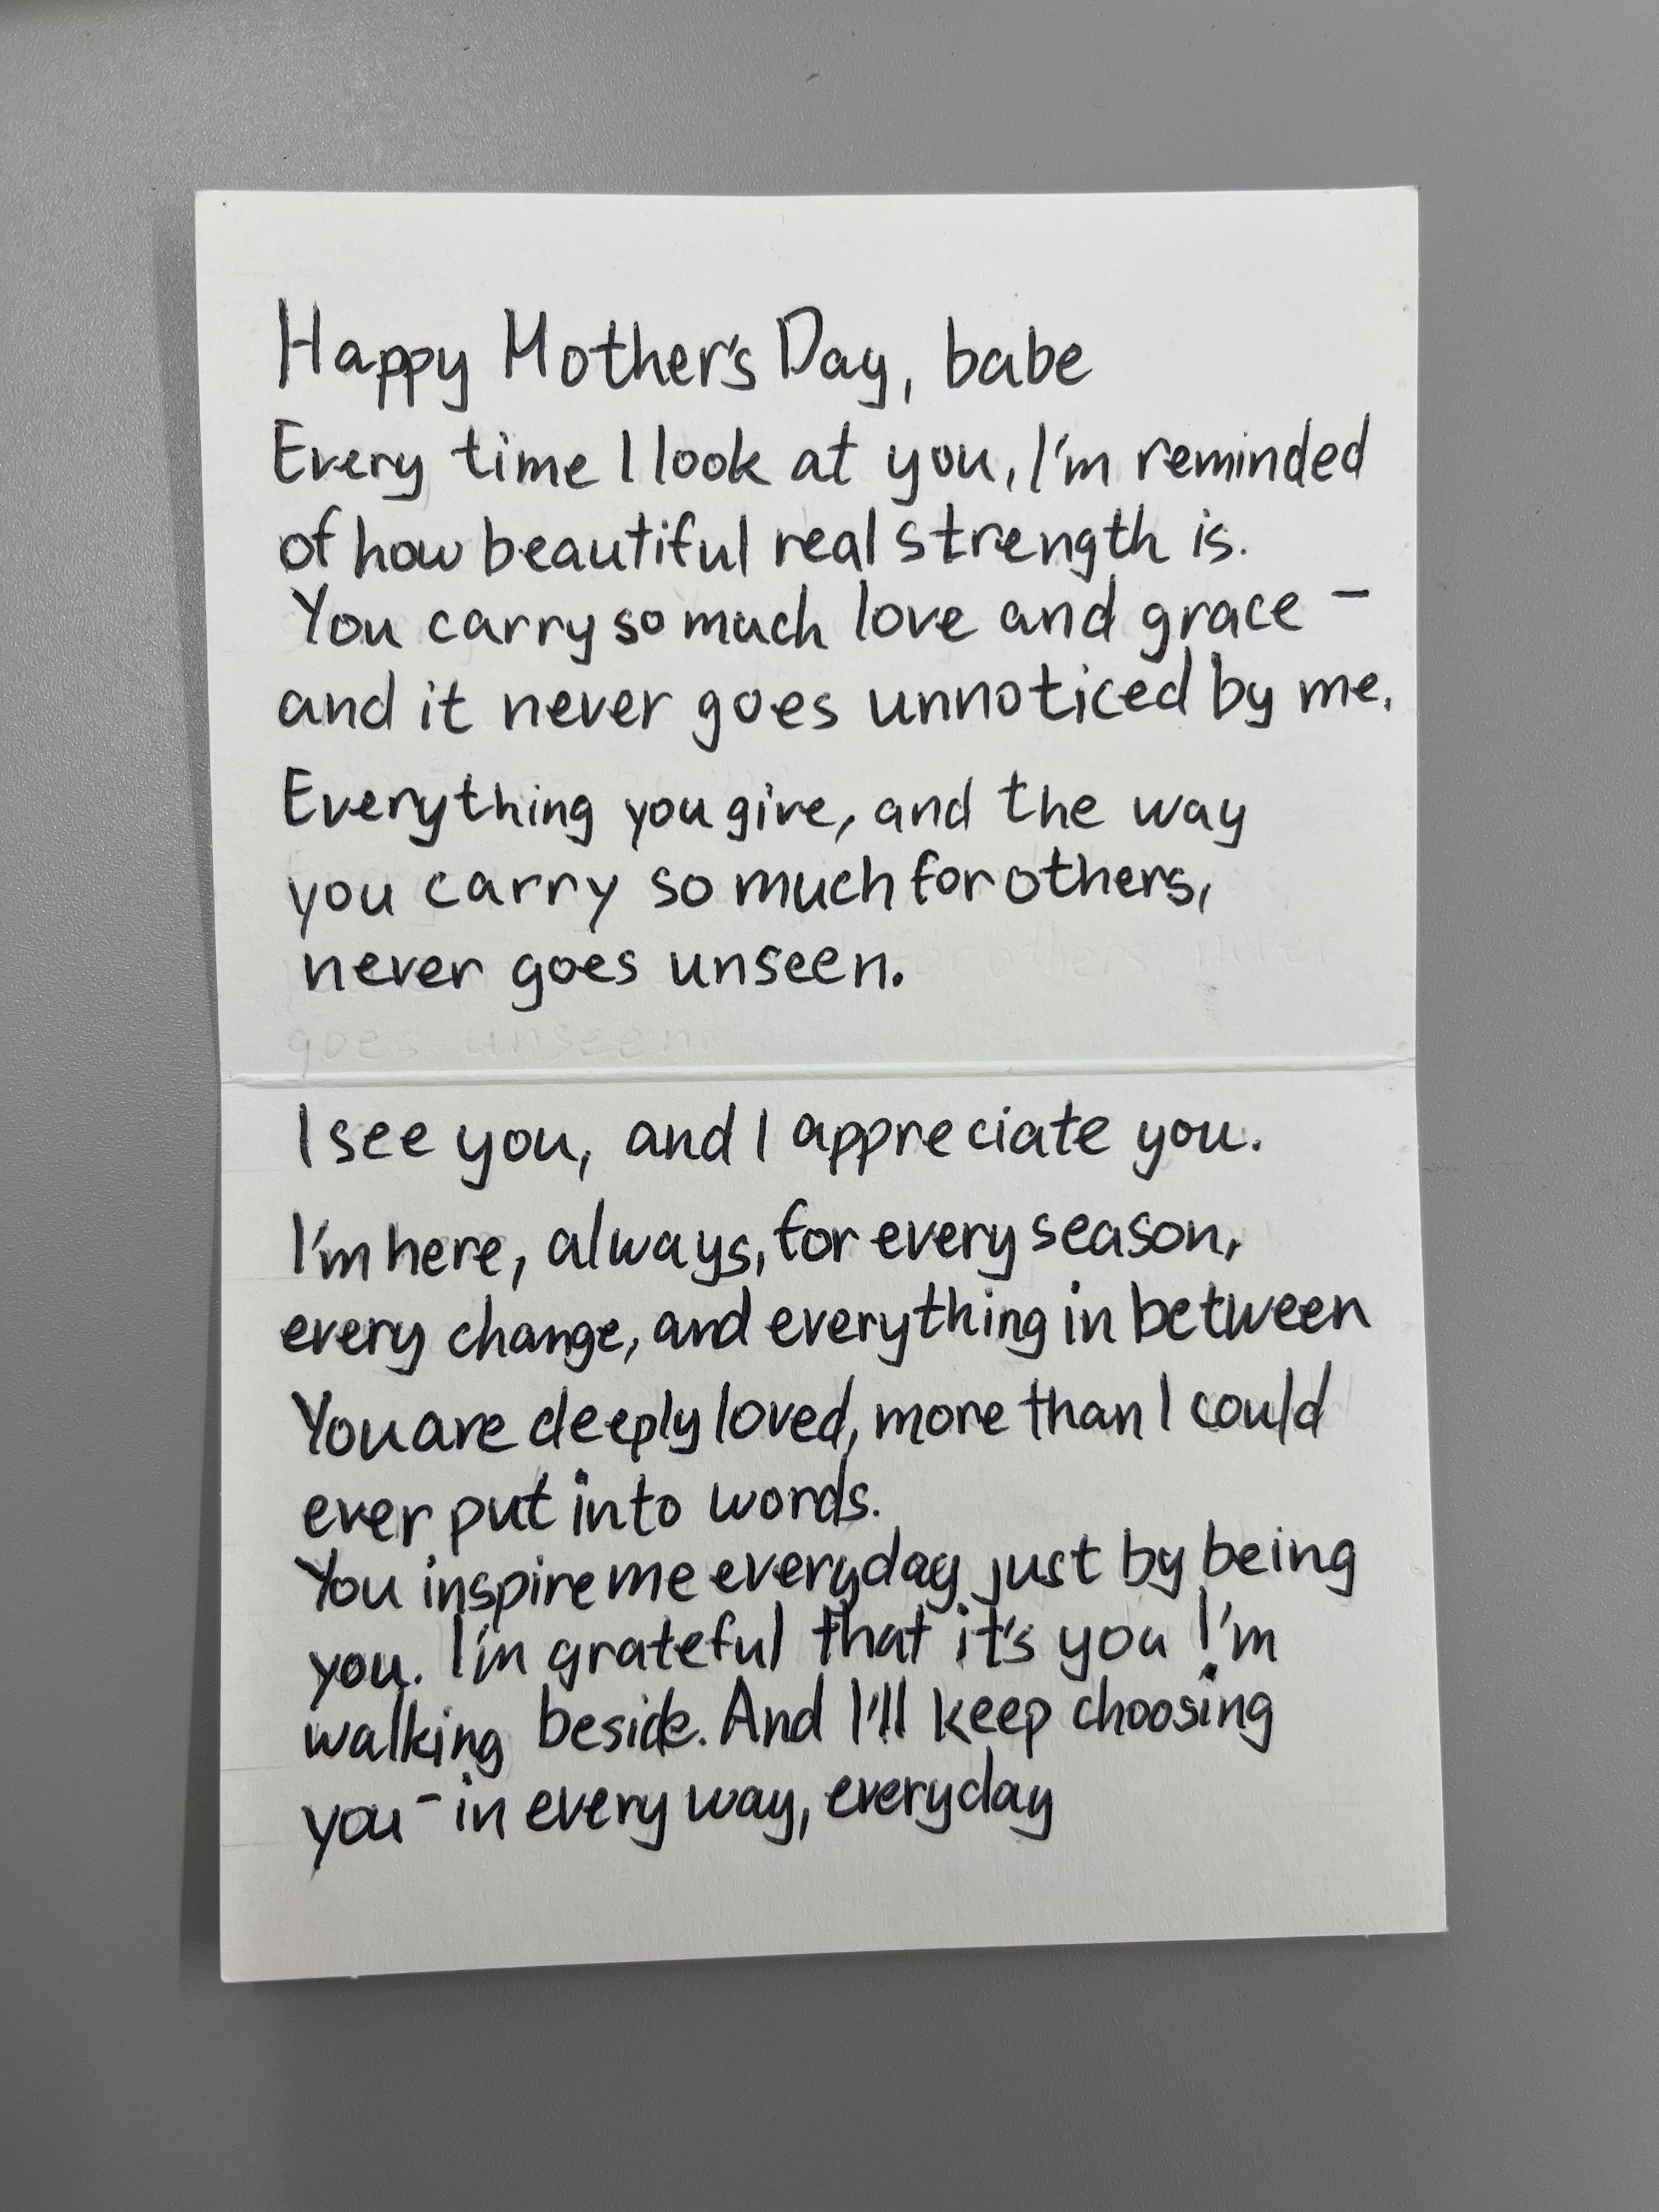 Happy Mother's Day, babe
Every time I look at you, I'm reminded
of how beautiful real strength is.
You carry so much love and grace –
and it never goes unnoticed by me.
Everything you give, and the way
you carry so much for others,
never goes unseen.
goes unseen
I see you, and I appreciate you.
I'm here, always, for every season,
every change, and everything in between
You are deeply loved, more than I could
ever put into words.
You inspire me everyday just by being
you. I'm grateful that it's you I'm
walking beside. And I'll keep choosing
you – in every way, everyday